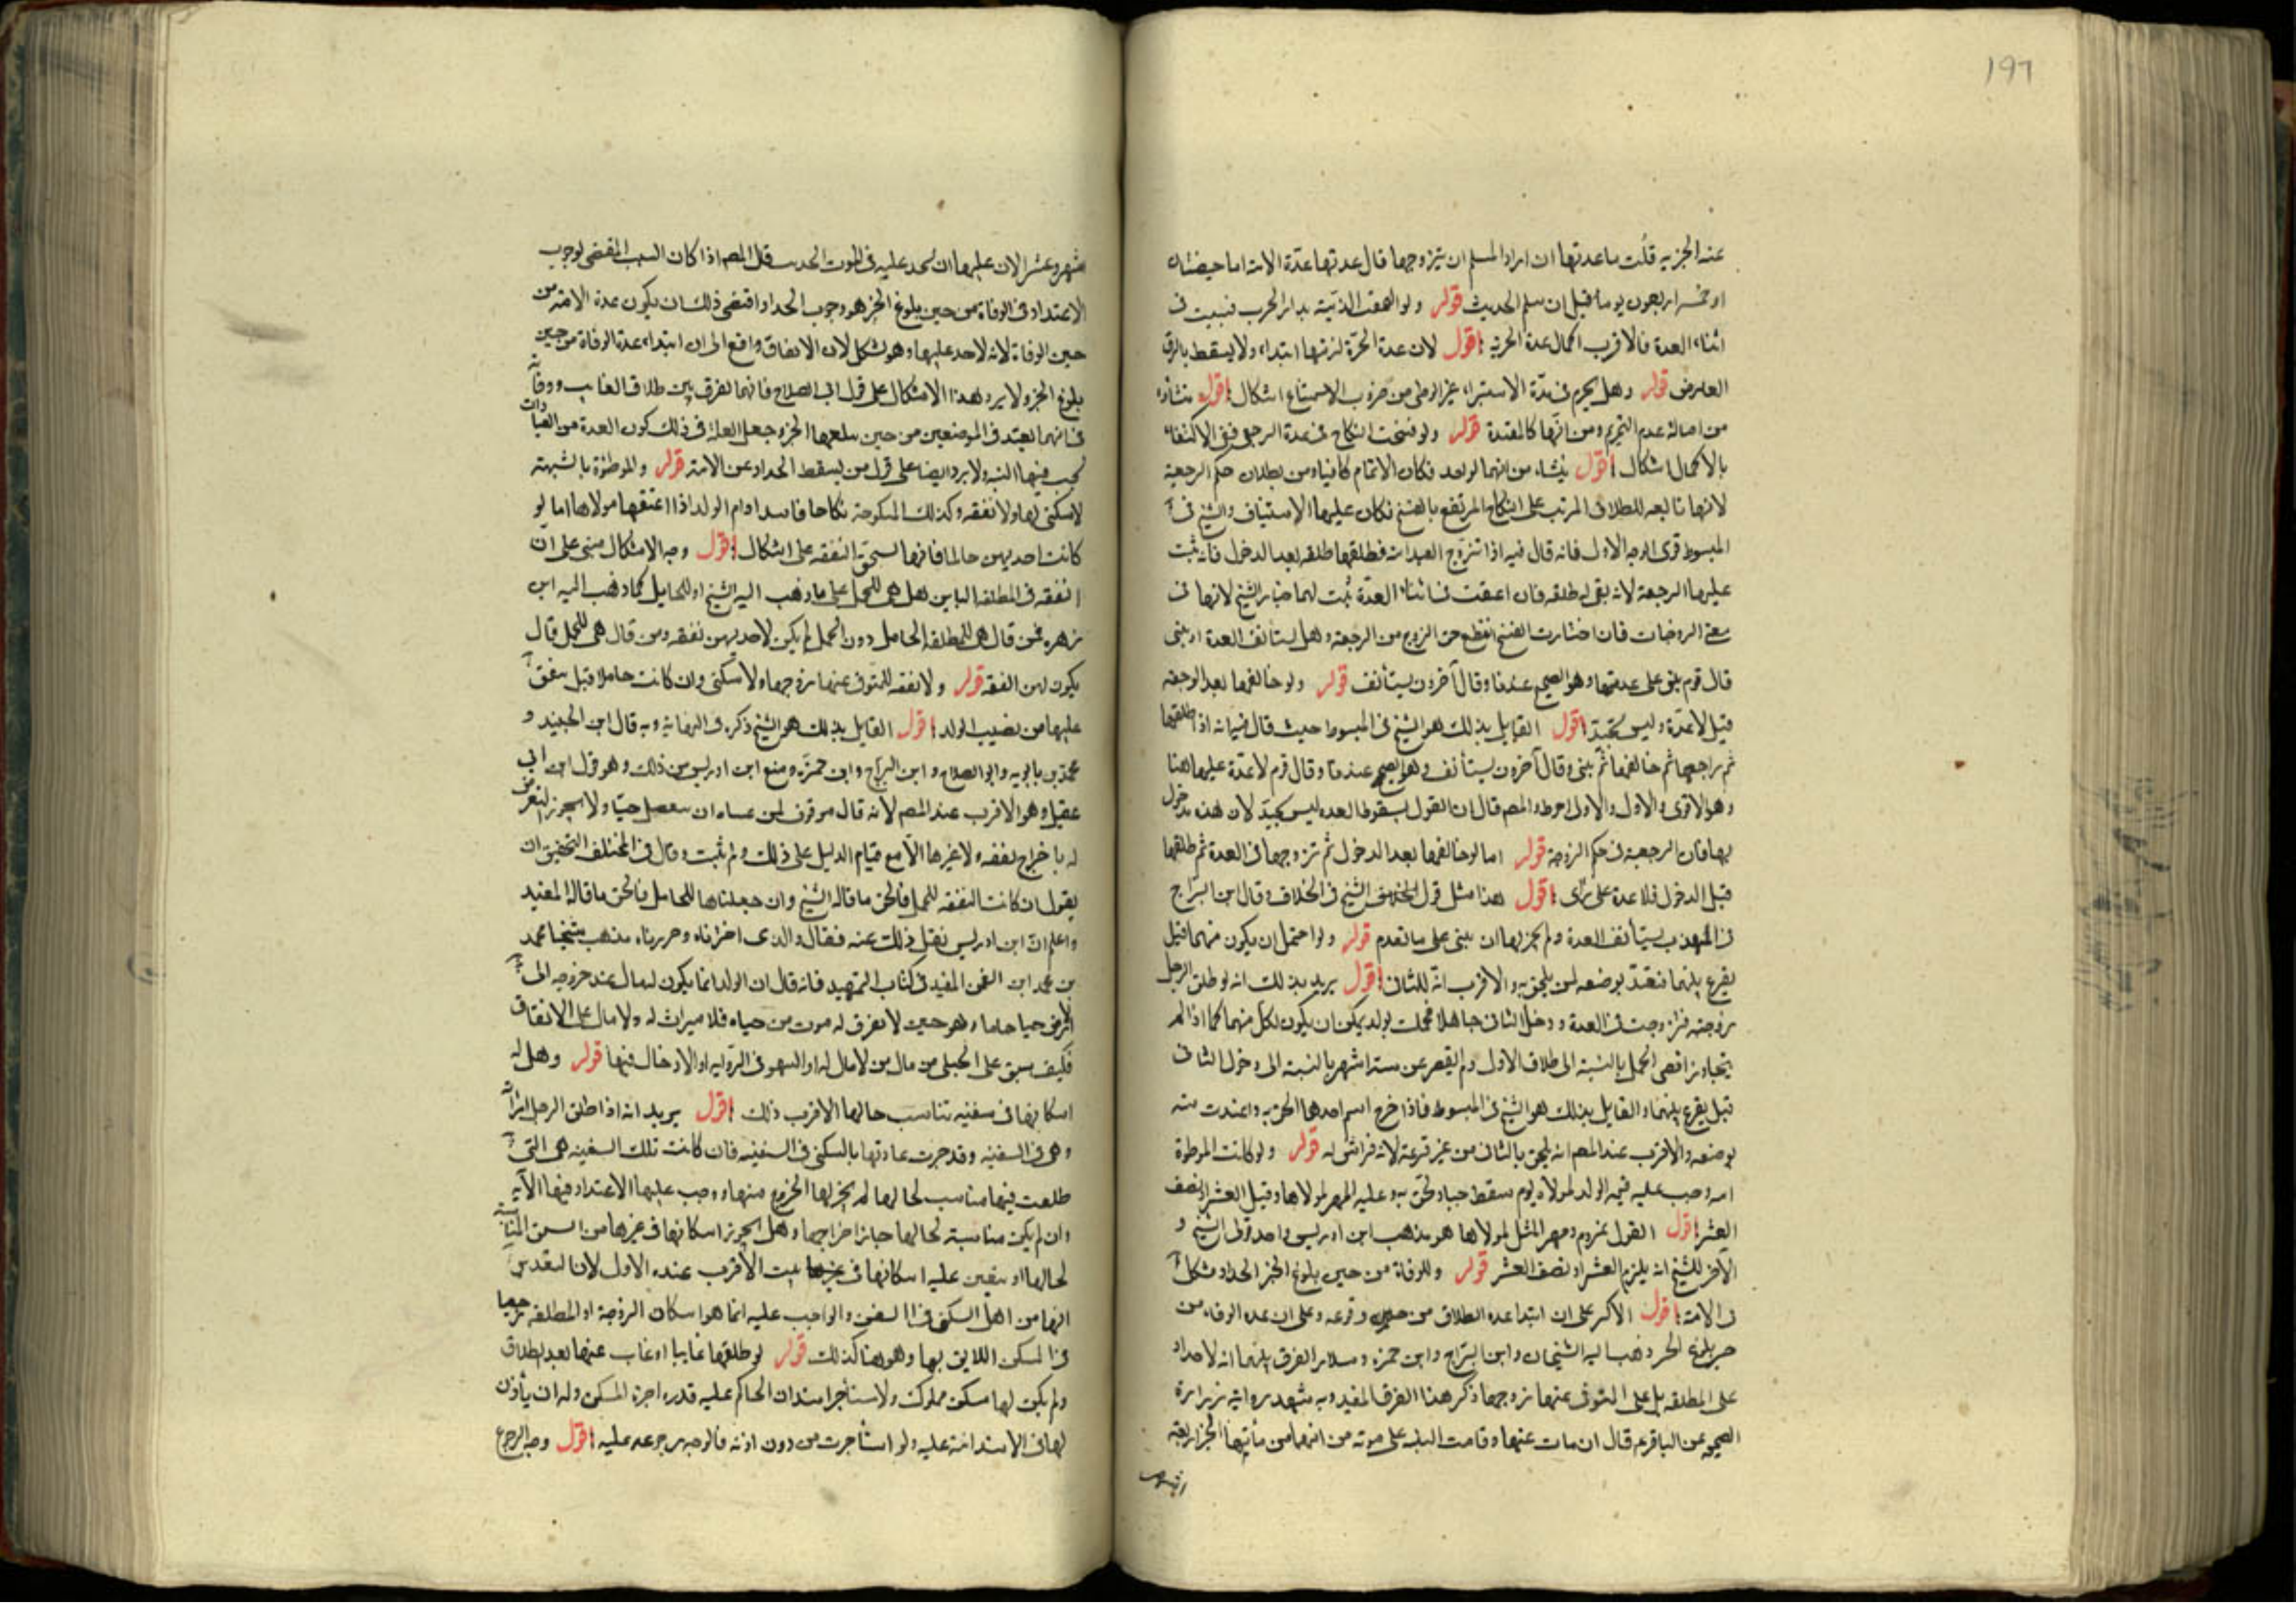 ١٩٦
عنه الجزيه قلت ما عدتها ان اراد المسلم ان يتزوجها قال عدتها عدة الامة اما حيضتان
او خمسه واربعون يوما قبل ان تسلم الحديث قوله ولو التحقت الذميه بدار الحرب فسبيت في
اثناء العدة فالاقرب اكمال عدة الحرة اقول لان عدة الحرة لزمتها ابتداء ولا يسقط بالرق
العارض قوله وهل يحرم في مدة الاستبراء غير الوطى من ضروب الاستمتاع اشكال اقول منشاؤه
من اصالة عدم التحريم ومن انها كالمعتدة قوله ولو فسخت النكاح في عدة الرجعي ففي الاكتفاء
بالاكمال اشكال اقول ينشاء من انهما لو بعد فكان الاتمام كافيا ومن بطلان حكم الرجعية
لانها تابعه للطلاق المرتب على النكاح المرتفع بالفسخ فكان عليها الاستيناف والشيخ في
المبسوط قوى الوجه الاول فانه قال فيه اذا تزوج العبد امة فطلقها طلقه بعد الدخول فانه يثبت
عليها الرجعة لانه بقى له طلقه فان اعتقت في اثناء العدة ثبت لها خيار الفسخ لانها في
معنى الزوجات فان اختارت الفسخ انقطع حق الزوج من الرجعة وهل يستانف العدة او تبنى
قال قوم تبنى على عدتها وهو الصحيح عندنا وقال آخرون يستأنف قوله ولو خالعها بعد الرجعة
قيل لا عدة وليس بجيد اقول القايل بذلك هو الشيخ في المبسوط حيث قال فيها انه اذا طلقها
ثم راجعها ثم خالعها ثم يبنى وقال آخرون يستأنف وهو الصحيح عندنا وقال قوم لا عدة عليها هنا
وهو الاقوى والاول والاول احوط والمص قال ان القول بسقوط العده ليس بجيد لان هذه مدخول
بها فان الرجعية في حكم الزوجة قوله اما لو خالعها بعد الدخول ثم تزوجها في العدة ثم طلقها
قبل الدخول فلا عدة على راى اقول هذا مثل قول الشيخ في الخلاف وقال ابن البراج
في المهذب يستأنف العدة ولم يجز لها ان تبنى على ما تقدم قوله ولو احتمل ان يكون منهما قيل
يقرع بينهما فتعتد بوضعه لمن يلحق به والاقرب انه للثانى اقول يريد بذلك انه لو طلق الرجل
زوجته فتزوجت في العدة ودخل الثانى جاهلا فحملت بولد يمكن ان يكون لكل منهما كما اذا لم
يتجاوز اقصى الحمل بالنسبة الى طلاق الاول ولم يقصر عن ستة اشهر بالنسبة الى دخول الثانى
قيل يقرع بينهما والقايل بذلك هو الشيخ في المبسوط فاذا خرج اسم احدهما الحق به واعتدت منه
بوضعه والاقرب عند المص انه يلحق بالثانى من غير قرعة لانه فراش له قوله ولو كانت الموطوة
امه وجب عليه قيمه الولد لمولاه يوم سقط حيا ولحق به وعليه المهر لمولاها وقيل العشر او نصف
العشر اقول القول بلزوم مهر المثل لمولاها هو مذهب ابن ادريس واحد قولى الشيخ و
الآخر للشيخ انه يلزم العشر او نصف العشر قوله وللوفاة من حين بلوغ الخبر الحداد مشكل
في الامة اقول الاكثر على ان ابتدا عده الطلاق من حين وقوعه وعلى ان عده الوفاه من
حين بلوغ الخبر ذهب اليه الشيخان وابن البراج وابن حمزه وسلار الفرق بينهما انه لا حداد
على المطلقه بل على المتوفى عنها زوجها ذكر هذا الفرق المفيد وبه شهد رواية زرارة
الصحيح عن الباقر ع قال ان مات عنها وقامت البينة على موته من انها من يأتيها الخبر اربعة
اشهر
اشهر وعشرا لان عليها ان تحد عليه في الموت الحديث قال المص اذا كان السبب المقتضى لوجوب
الاعتداد في الوفاة من حين بلوغ الخبر هو وجوب الحداد اقتضى ذلك ان يكون عدة الامة من
حين الوفاة لانه لا حد عليها وهو مشكل لان الاتفاق واقع الى ان ابتداء عدة الوفاة من حين
بلوغ الخبر ولا يرد هذا الاشكال على قول ابى الصلاح فانه لم يفرق بين طلاق الغايب ووفاته
في انها تعتد في الموضعين من حين بلغها الخبر وجعل العلة في ذلك كون العدة من العبادات
تجب فيها النيه ولا يرد ايضا على قول من يسقط الحداد عن الامة قوله والموطؤة بالشبهة
لا سكنى لها ولا نفقه وكذلك المنكوحة نكاحا فاسدا وام الولد اذا اعتقها مولاها اما لو
كانت احديهن حاملا فانها تستحق النفقه على اشكال اقول وجه الاشكال مبنى على ان
النفقه في المطلقه الباين هل هي للحمل على ما ذهب اليه الشيخ او للحامل كما ذهب اليه ابن
زهره فمن قال هي للمطلقه الحامل دون الحمل لم يكن لاحديهن نفقه ومن قال هي للحمل قال
يكون لهن النفقه قوله ولا نفقه للمتوفى عنها زوجها ولا سكنى وان كانت حاملا وقيل ينفق
عليها من نصيب الولد اقول القايل بذلك هو الشيخ ذكره في النهاية وبه قال ابن الجنيد و
محمد بن بابويه وابو الصلاح وابن البراج وابن حمزة ومنع ابن ادريس من ذلك وهو قول ابن ابى
عقيل وهو الاقرب عند المص لانه قال موقوف لمن عساه ان ينفصل حيا ولا يجوز التعرض
له باخراج نفقه ولا غيرها الا مع قيام الدليل على ذلك ولم يثبت وقال في المختلف التحقيق ان
يقول ان كانت النفقه للحمل فالحق ما قاله الشيخ وان جعلناها للحامل فالحق ما قاله المفيد
واعلم ان ابن ادريس نقل ذلك عنه فقال والذى اخترناه وحررناه مذهب شيخنا محمد
بن محمد ابن النعمن المفيد في كتاب التمهيد فانه قال ان الولد انما يكون له مال عند خروجه الى
الارض حيا فاما وهو حين لا يعرف له موت من حياه فلا ميراث له ولا مال على الاتفاق
فكيف ينفق على الحبلى من مال من لا مال له او السهو في الروايه او الادخال فيها قوله وهل له
اسكانها في سفينه تناسب حالها الاقرب ذلك اقول يريد انه اذا طلق الرجل امراته
وهي في السفينه وقد جرت عادتها بالسكنى في السفينه فان كانت تلك السفينه هي التى
طلقت فيها مناسب لحالها لم يجز لها الخروج منها ووجب عليها الاعتداد فيها الآيه
وان لم يكن مناسبة لحالها جاز اخراجها وهل يجوز اسكانها في غيرها من السفن المناسبة
لحالها او يتعين عليه اسكانها في بيت الاقرب عنده الاول لان التقدير
انها من اهل السكنى في السفن والواجب عليه انما هو اسكان الزوجة او المطلقه رجعيا
في المسكن اللايق بها وهو هنا كذلك قوله لو طلقها غايبا او غاب عنها بعد الطلاق
ولم يكن لها مسكن مملوك ولا مستأجر استدان الحاكم عليه قدر اجرة المسكن وله ان يأذن
لها في الاستدانة عليه ولو استأجرت من دون اذنه فالوجه رجوعه عليه اقول وجه الرجوع